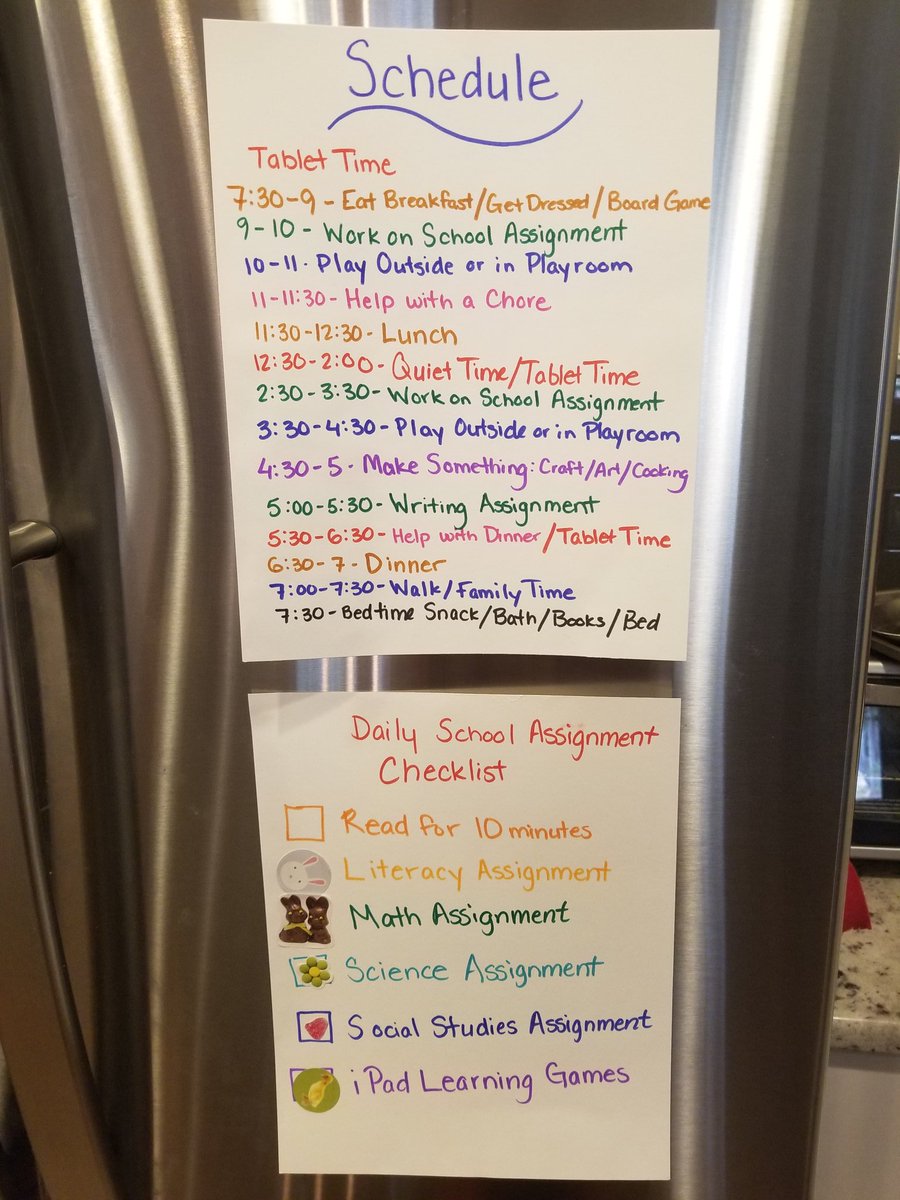 Schedule
Tablet Time
7:30-9 - Eat Breakfast/Get Dressed/Board Game
9-10 - Work on School Assignment
10-11 - Play Outside or in Playroom
11-11:30 - Help with a Chore
11:30-12:30 - Lunch
12:30-2:00 - Quiet Time/Tablet Time
2:30 - 3:30 - Work on School Assignment
3:30-4:30 - Play Outside or in Playroom
4:30-5 - Make Something: Craft/Art/Cooking
5:00-5:30 - Writing Assignment
5:30-6:30 - Help with Dinner/Tablet Time
6:30-7 - Dinner
7:00-7:30 - Walk/Family Time
7:30 - Bedtime Snack/Bath/Books/Bed
Daily School Assignment
Checklist
Read for 10 minutes
Literacy Assignment
Math Assignment
Science Assignment
Social Studies Assignment
iPad Learning Games